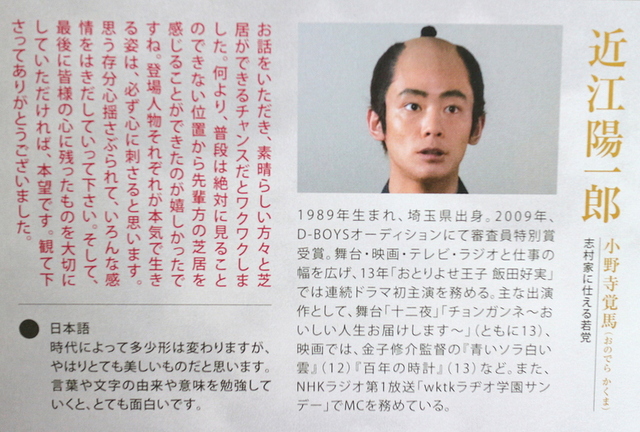 近江陽一郎
小野寺覚馬(おのでら かくま)
志村家に仕える若党
1989年生まれ、埼玉県出身。2009年、
D-BOYSオーディションにて審査員特別賞
受賞。舞台・映画・テレビ・ラジオと仕事の
幅を広げ、13年「おとりよせ王子 飯田好実」
では連続ドラマ初主演を務める。主な出演
作として、舞台「十二夜」「チョンガンネ〜お
いしい人生お届けします〜」(ともに13)、
映画では、金子修介監督の『青いソラ白い
雲』(12)『百年の時計』(13)など。また、
NHKラジオ第1放送「wktkラヂオ学園サン
デー」でMCを務めている。
お話をいただき、素晴らしい方々と芝
居ができるチャンスだとワクワクしま
した。何より、普段は絶対に見ること
のできない位置から先輩方の芝居を
感じることができたのが嬉しかったで
すね。登場人物それぞれが本気で生き
る姿は、必ず心に刺さると思います。
思う存分心揺さぶられて、いろんな感
情をはきだしていって下さい。そして、
最後に皆様の心に残ったものを大切に
していただければ、本望です。観て下
さってありがとうございました。
●日本語
時代によって多少形は変わりますが、
やはりとても美しいものだと思います。
言葉や文字の由来や意味を勉強して
いくと、とても面白いです。